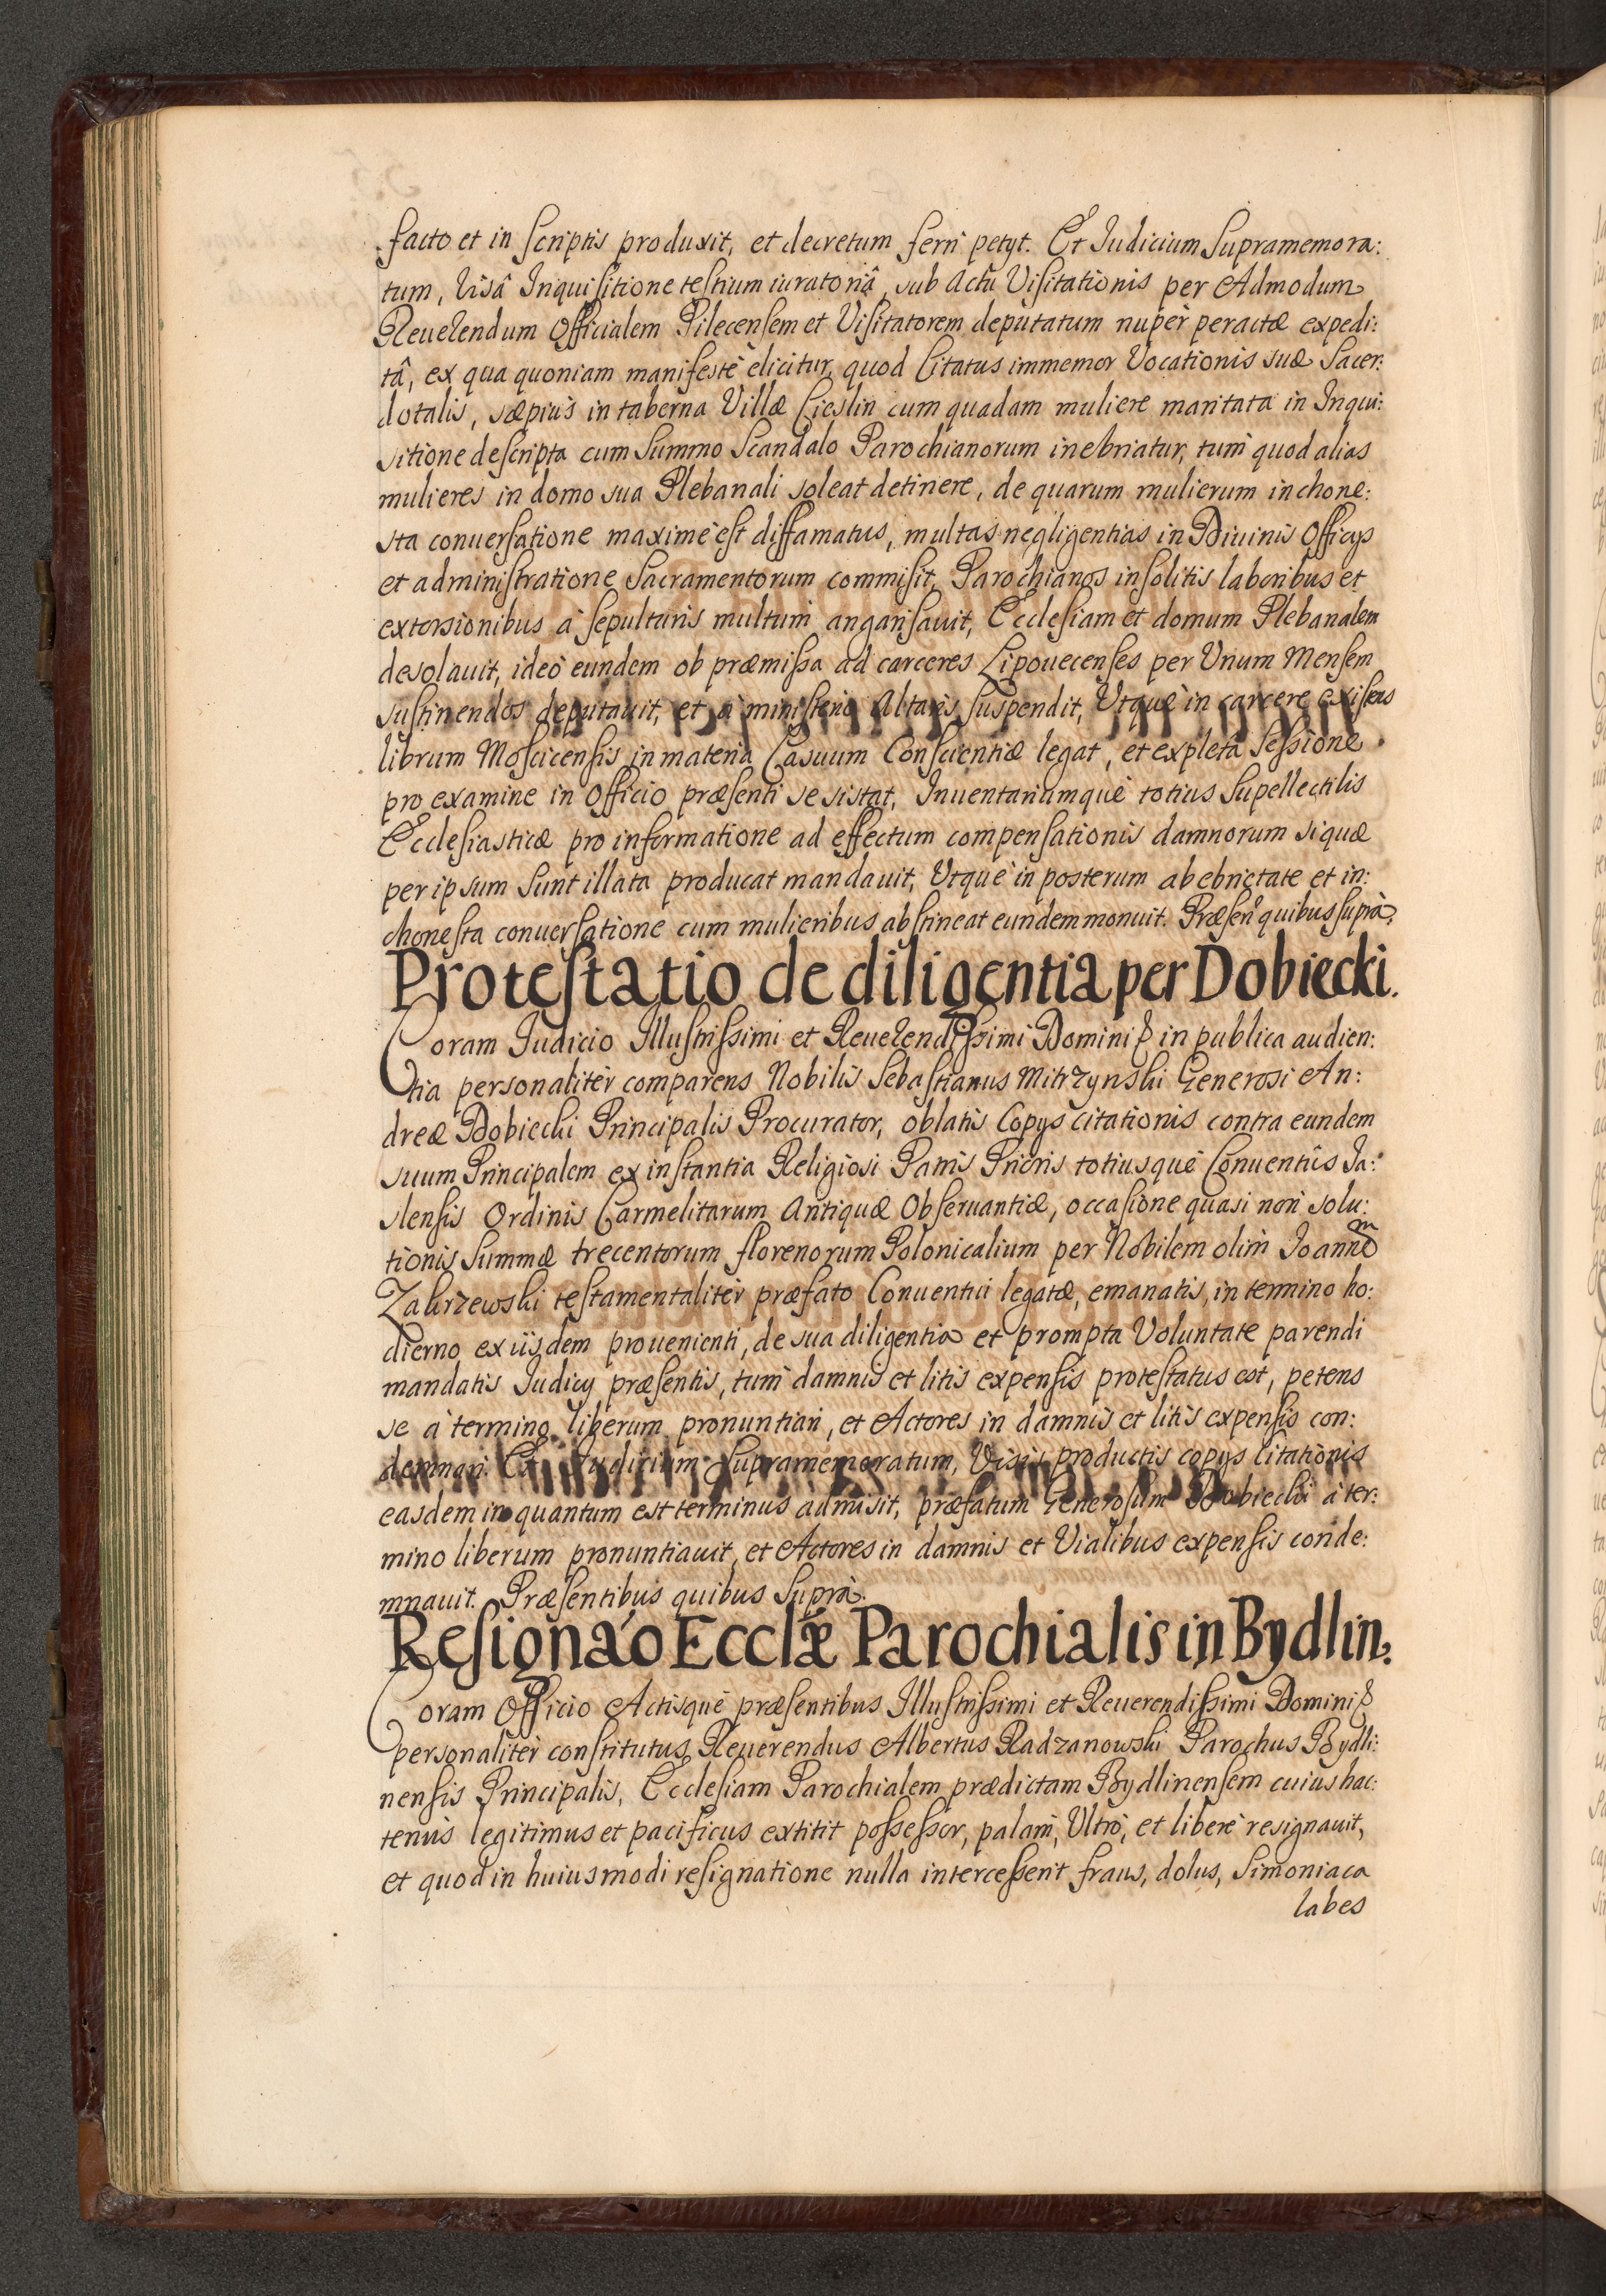 facto et in scriptis produxit, et decretum ferri petyt. Et Iudicium Supramemora:
tum, Visâ Inquisitione testium iuratoriâ, sub Actu Visitationis per Admodum
Reuerendum Officialem Pilecensem et Visitatorem deputatum nupèr peractæ expedi:
tâ, ex qua quoniam manifestè elicitur, quod Citatus immemor Vocationis suæ Sacer:
dotalis, sæpiùs in taberna Villæ Cieslin cum quadam muliere maritata in Inqui:
sitione descripta cum Summo Scandalo Parochianorum inebriatur, tum quod alias
mulieres in domo sua Plebanali soleat detinere, de quarum mulierum inhone:
sta conuersatione maximè est diffamatus, multas negligentias in Diuinis Officijs
et administratione Sacramentorum commisit, Parochianos insolitis laboribus et
extorsionibus à sepulturis multùm angarisauit, Ecclesiam et domum Plebanalem
desolauit, ideò eundem ob præmissa ad carceres Lipouecenses per Vnum Mensem
sustinendos deputauit, et à ministerio Altaris suspendit, Vtquè in carcere existens
librum Moscicensis in materia Casuum Conscientiæ legat, et expleta Sessione
pro examine in Officio præsenti se sistat, Inuentariumquè totius Supellectilis
Ecclesiasticæ pro informatione ad effectum compensationis damnorum siquæ
per ipsum Sunt illata producat mandauit, Vtquè in posterum ab ebrietate et in:
honesta conuersatione cum mulieribus abstineat eundem monuit. Præsen quibus suprà.
Protestatio de diligentia per Dobiecki.
Coram Iudicio Illustrissimi et Reuerendissimi Domini & in publica audien:
tia personalitèr comparens Nobilis Sebastianus Mitrzynski Generosi An:
dreæ Dobiecki Principalis Procurator, oblatis Copijs citationis contra eundem
suum Principalem ex instantia Religiosi Patris Prioris totiusquè Conuentûs Ja:
slensis Ordinis Carmelitarum Antiquæ Obseruantiæ, occasione quasi non solu:
tionis Summæ trecentorum florenorum Polonicalium per Nobilem olim Ioannem
Zakrzewski testamentalitèr præfato Conuentui legatæ, emanatis, in termino ho:
dierno ex iisdem prouenienti, de sua diligentia et prompta Voluntate parendi
mandatis Iudicij præsentis, tum damnis et litis expensis protestatus est, petens
se à termino liberum pronuntiari, et Actores in damnis et litis expensis con:
demnari. Et Iudicium Supramemoratum, Visis productis copijs Citationis
easdem in quantum est terminus admisit, præfatum Generosum Dobiecki à ter:
mino liberum pronuntiauit, et Actores in damnis et Vialibus expensis conde:
mnauit. Præsentibus quibus Suprà.
Resignao Ecclæ Parochialis in Bydlin.
Coram Officio Actisquè præsentibus Illustrissimi et Reuerendissimi Domini &
personalitèr constitutus Reuerendus Albertus Radzanowski Parochus Bydli:
nensis Principalis, Ecclesiam Parochialem prædictam Bydlinensem cuius hac:
tenus legitimus et pacificus extitit possessor, palàm, Vltrò, et liberè resignauit,
et quod in huiusmodi resignatione nulla intercesserit fraus, dolus, Simoniaca
labes